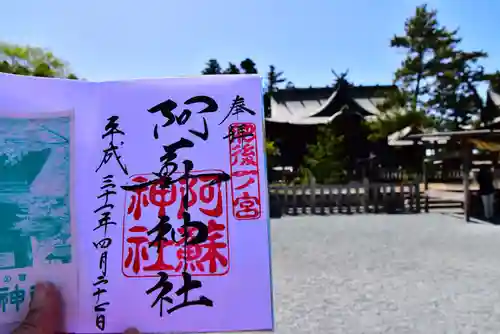 奉拝
肥後一ノ宮
阿蘇神社
阿蘇
神社
平成三十一年四月二十一日
の宮
神社